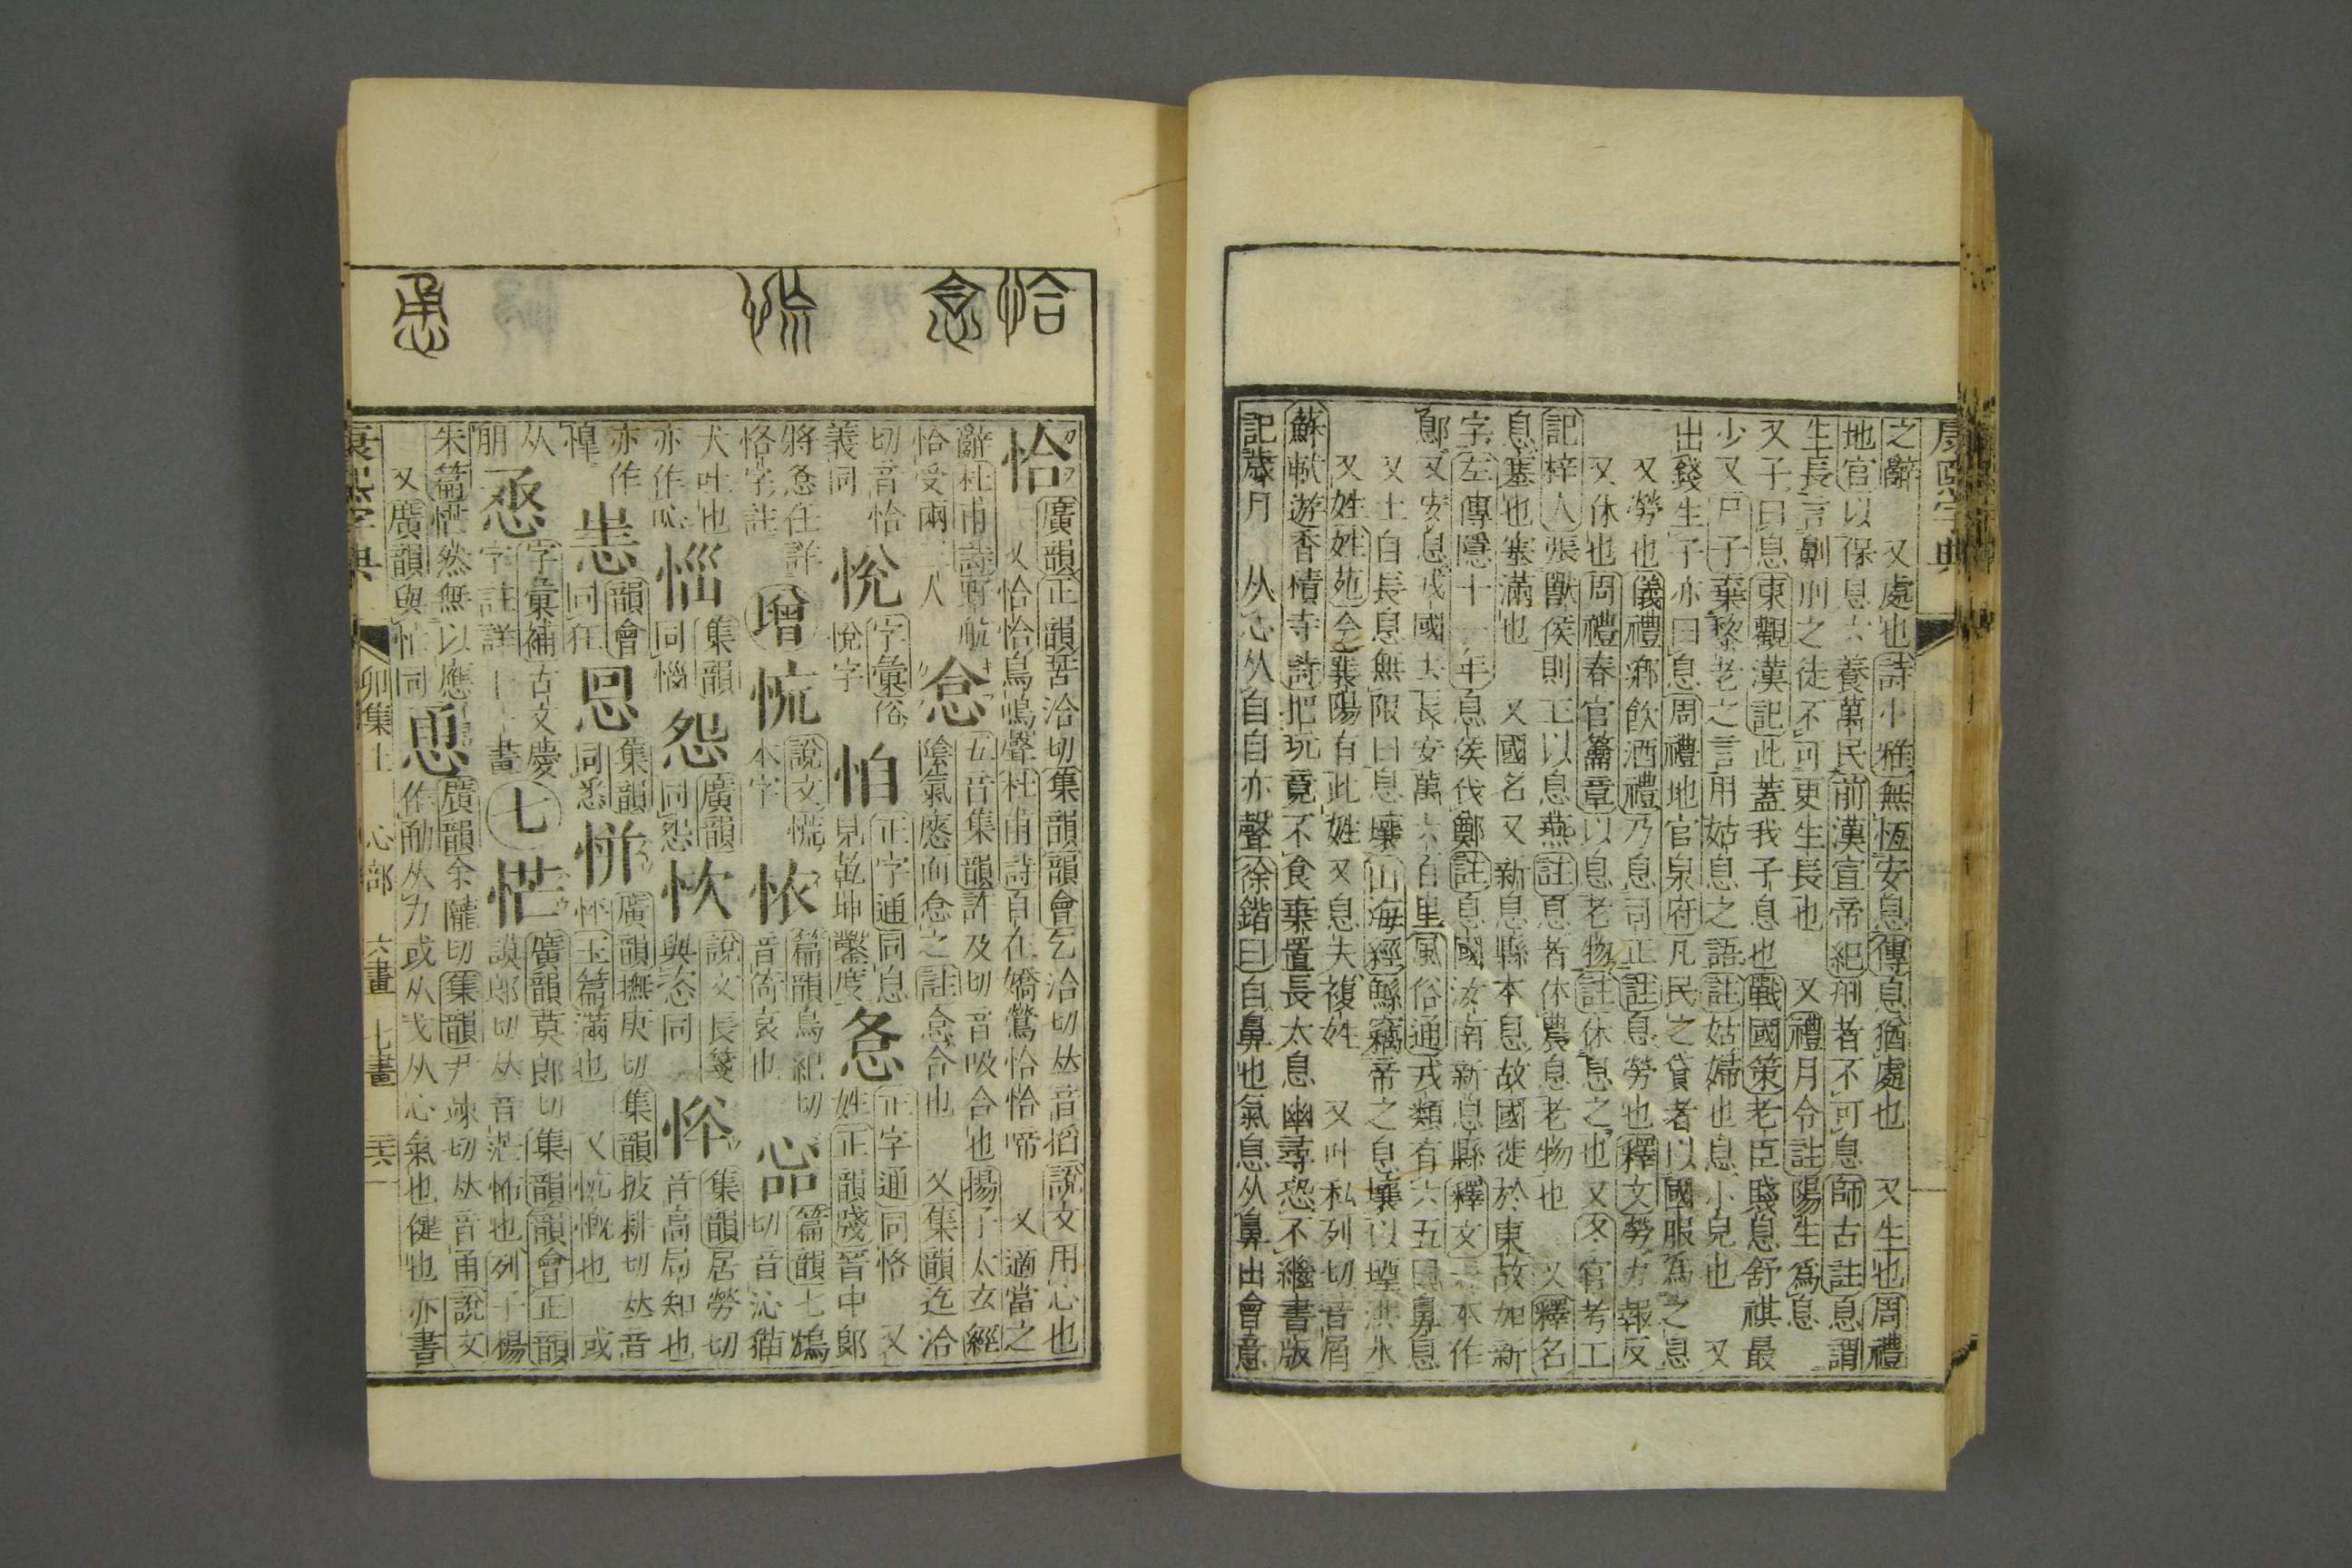 康熙字典
之辭 又處也詩小雅無恆安息傳息猶處也 又生也周禮
地官以保息六養萬民前漢宣帝紀刑者不可息師古註息謂
生長言劓刖之徒不可更生長也 又禮月令註陽生爲息
又子曰息東觀漢記此蓋我子息也戰國策老臣賤息舒祺最
少又尸子棄黎老之言用姑息之語註姑婦也息小兒也 又
出錢生子亦曰息周禮地官泉府凡民之貸者以國服爲之息
又勞也儀禮鄕飮酒禮乃息司正註息勞也釋文勞力報反
又休也周禮春官籥章以息老物註休息之也又冬官考工
記梓人張獸侯則王以息燕註息者休農息老物也 又釋名
息塞也塞滿也 又國名又新息縣本息故國徙於東故加新
字左傳隱十一年息侯伐鄭註息國汝南新息縣釋文一本作
鄎 又安息戎國去長安萬六百里風俗通戎類有六五曰鼻息
又土自長息無限曰息壤山海經鯀竊帝之息壤以堙洪水
又姓姓苑今襄陽有此姓又息夫複姓 又叶私列切音屑
蘇軾遊香積寺詩把玩竟不食棄置長太息幽尋恐不繼書版
記歲月 从心从自自亦聲徐鍇曰自鼻也氣息从鼻出會意
恰 悆 㤺 恿
恰 廣韻正韻苦洽切集韻韻會乞洽切𠀤音掐說文用心也
又恰恰鳥鳴聲杜甫詩自在嬌鶯恰恰啼 又適當之
辭杜甫詩野航恰受兩三人
五音集韻許及切音吸合也揚子太玄經
陰氣應而㤿之註㤿合也 又集韻迄洽
切音恰義同
悅 字彙俗悅字
怕 正字通同息見乾坤鑿度
正字通同恪 又姓正韻殘晉中郞
將㤩任詳恪字註
增
㤺 說文㤺本字
㤅 篇韻烏紀切音㣃哀也
篇韻七鴆切音沁猫犬吐也亦作吣
集韻同惱亦作
怨 廣韻同怨
㤞 說文長箋與恣同
集韻居勞切音高局知也
韻會同狂
恖 集韻同悉
恲 廣韻撫庚切集韻披耕切𠀤音
怦玉篇滿也 又忼慨也 或从
字彙補古文慶字註詳十一畫
七
恾 廣韻莫郎切集韻韻會正韻
謨郎切𠀤音茫怖也列子楊
朱篇恾然無以應
又廣韻與忙同
恿 廣韻余隴切集韻尹竦切𠀤音甬說文
作勈从力或从戈从心氣也健也亦書
康熙字典 卯集上 心部 六畫 七畫